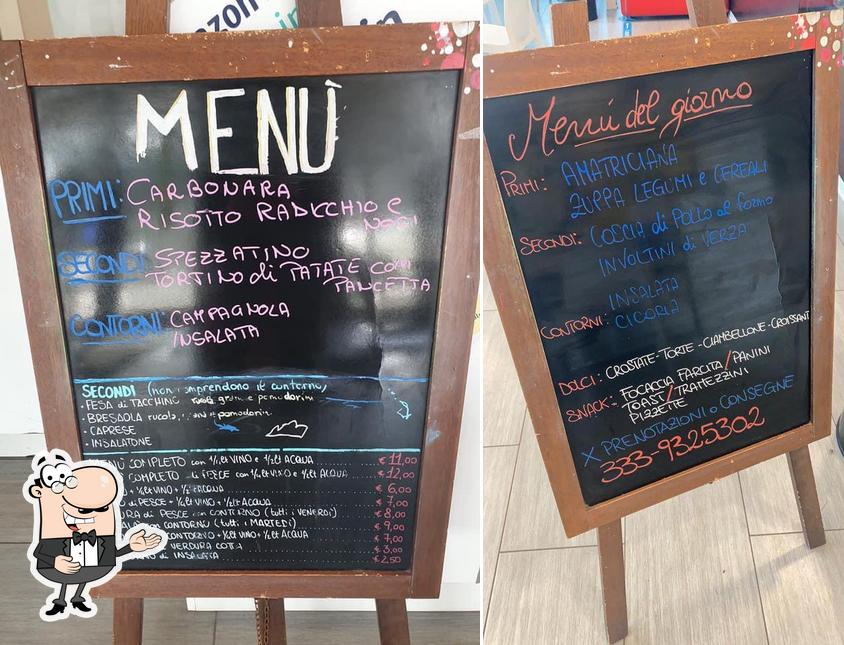 MENÙ
PRIMI: CARBONARA
RISOTTO RADICCHIO e
NOCI
SECONDI: SPEZZATINO
TORTINO di PATATE CON
PANCETTA
CONTORNI: CAMPAGNOLA
INSALATA
SECONDI (non comprendono il contorno)
• FESA di TACCHINO rucola grana e pomodorini
• BRESAOLA rucola, e pomodorini
• CAPRESE
• INSALATONE
COMPLETO con 1/4 lt VINO e 1/2 lt ACQUA € 11,00
COMPLETO di PESCE con 1/4 lt VINO e 1/2 lt ACQUA € 12,00
+ 1/4 lt VINO + 1/2 lt ACQUA € 6,00
di PESCE + 1/4 lt VINO + 1/2 lt ACQUA € 7,00
di PESCE con CONTORNO (tutti i VENERDÌ) € 8,00
con CONTORNO (tutti i MARTEDÌ) € 9,00
CONTORNO + 1/4 lt VINO + 1/2 lt ACQUA € 7,00
VERDURA COTTA € 3,00
di INSALATA € 2,50
Menù del giorno
PRIMI: AMATRICIANA
ZUPPA LEGUMI e CEREALI
SECONDI: COSCIA di POLLO al forno
INVOLTINI di VERZA
INSALATA
CONTORNI: CICORIA
DOLCI: CROSTATE - TORTE - CIAMBELLONE - CROISSANT
SNACK: FOCACCIA FARCITA / PANINI
TOAST / TRAMEZZINI
PIZZETTE
X PRENOTAZIONI o CONSEGNE
333-9325302